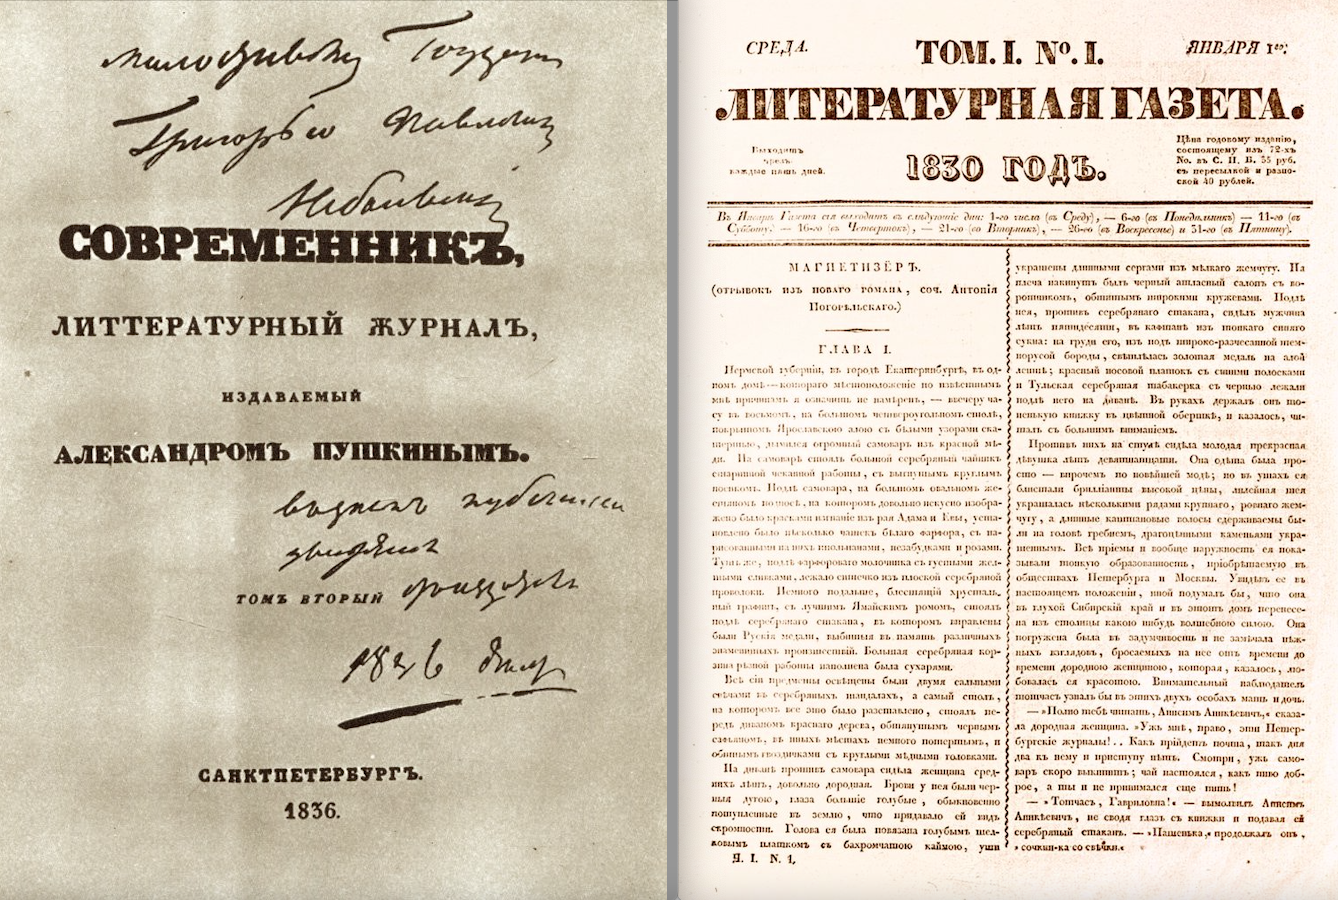 милостивому Государю
Григорью Павловичу
Небольсину
СОВРЕМЕННИКЪ,
ЛИТТЕРАТУРНЫЙ ЖУРНАЛЪ,
ИЗДАВАЕМЫЙ
АЛЕКСАНДРОМЪ ПУШКИНЫМЪ.
ТОМЪ ВТОРЫЙ
1836
САНКТПЕТЕРБУРГЪ.
1836.
СРЕДА.
ТОМ. I. №. I.
ЯНВАРЯ 1го;
ЛИТЕРАТУРНАЯ ГАЗЕТА.
Выходитъ
чрезъ
каждые пять дней.
1830 ГОДЪ.
Цѣна годовому изданію,
состоящему изъ 72-хъ
No. въ С. П. Б. 35 руб.
съ пересылкой и разно-
ской 40 рублей.
Въ Январѣ Газета сія выходитъ въ слѣдующіе дни: 1-го числа (въ Среду), — 6-го (въ Понедѣльникъ) — 11-го (въ
Субботу), — 16-го (въ Четвертокъ), — 21-го (во Вторникъ), — 26-го (въ Воскресенье) и 31-го (въ Пятницу).
МАГНЕТИЗЁРЪ.
(отрывокъ изъ новаго романа, соч. Антонія
Погорѣльскаго.)
ГЛАВА I.
Пермской губерніи, въ городѣ Екатеринбургѣ, въ од-
номъ домѣ — котораго мѣстоположеніе по извѣстнымъ
мнѣ причинамъ я означить не намѣренъ, — ввечеру ча-
су въ восьмомъ, на большомъ четвероугольномъ столѣ,
покрытомъ Ярославскою алою съ бѣлыми узорами ска-
тертью, дымился огромный самоваръ изъ красной мѣ-
ди. На самоварѣ стоялъ большой серебряный чайникъ
старинной чеканной работы, съ выгнутымъ круглымъ
носикомъ. Подлѣ самовара, на большомъ овальномъ же-
стяномъ подносѣ, на которомъ довольно искусно изобра-
жено было красками изгнаніе изъ рая Адама и Евы, уста-
новлено было нѣсколько чашекъ бѣлаго фарфора, съ на-
рисованными на нихъ тюльпанами, незабудками и розами.
Тутъ же, подлѣ фарфороваго молочника съ густыми жел-
тыми сливками, лежало ситечко изъ плоской серебряной
проволоки. Немного подальше, блестящій хрусталь-
ный графинъ, съ лучшимъ Ямайскимъ ромомъ, стоялъ
подлѣ серебрянаго стакана, въ которомъ вправлены
были Рускія медали, выбитыя въ память различныхъ
знаменитыхъ произшествій. Большая серебряная кор-
зина рѣзной работы наполнена была сухарями.
Всѣ сіи предметы освѣщены были двумя сальными
свѣчами въ серебряныхъ шандалахъ, а самый столъ,
на которомъ все это было разставлено, стоялъ пе-
редъ диваномъ краснаго дерева, обтянутымъ чернымъ
сафьяномъ, въ иныхъ мѣстахъ немного потертымъ, и
обитымъ гвоздичками съ круглыми мѣдными головками.
На диванѣ противъ самовара сидѣла женщина сред-
нихъ лѣтъ, довольно дородная. Брови у нея были чер-
ныя дугою, глаза большіе голубые, обыкновенно
потупленные въ землю, что придавало ей видъ
скромности. Голова ея была повязана голубымъ шел-
ковымъ платкомъ съ бахромчатою каймою, уши
Л. I. N. 1,
украшены длинными сергами изъ мѣлкаго жемчугу. На
плеча накинутъ былъ черный атласный салопъ съ во-
ротникомъ, обшитымъ широкими кружевами. Подлѣ
нея, противъ серебрянаго стакана, сидѣлъ мужчина
лѣтъ пятидесяти, въ кафтанѣ изъ тонкаго синяго
сукна: на груди его, изъ подъ широко-разчесанной тем-
норусой бороды, свѣтилась золотая медаль на алой
лентѣ; красный носовой платокъ съ синими полосками
и Тульская серебряная табакерка съ чернью лежали
подлѣ него на диванѣ. Въ рукахъ держалъ онъ то-
ненькую книжку въ цвѣтной оберткѣ, и казалось, чи-
талъ съ большимъ вниманіемъ.
Противъ нихъ на стулѣ сидѣла молодая прекрасная
дѣвушка лѣтъ девятнадцати. Она одѣта была про-
сто — впрочемъ по новѣйшей модѣ; но въ ушахъ ея
блистали брилліанты высокой цѣны, лилейная шея
украшалась нѣсколькими рядами крупнаго, ровнаго жем-
чугу, а длинные каштановые волосы сдерживаемы бы-
ли на головѣ гребнемъ, драгоцѣнными каменьями укра-
шеннымъ. Всѣ пріемы и вообще наружность ея пока-
зывали тонкую образованность, пріобрѣтаемую въ
обществахъ Петербурга и Москвы. Увидѣвъ ее въ
настоящемъ положеніи, иной подумалъ бы, что она
въ глухой Сибирскій край и въ этотъ домъ перенесе-
на изъ столицы какою нибудь волшебною силою. Она
погружена была въ задумчивость и не замѣчала нѣж-
ныхъ взглядовъ, бросаемыхъ на нее отъ времени до
времени дородною женщиною, которая, казалось, лю-
бовалась ея красотою. Внимательный наблюдатель
тотчасъ узналъ бы въ этихъ двухъ особахъ мать и дочь.
— »Полно тебѣ читать, Анисимъ Аникѣевичъ,« сказа-
ла дородная женщина. »Ужъ мнѣ, право, эти Петер-
бургскіе журналы!.. Какъ прійдетъ почта, такъ дня
два къ нему и приступу нѣтъ. Смотри, ужъ само-
варъ скоро выкипитъ; чай настоялся, какъ пиво доб-
рое, а ты и не принимался еще пить!
— »Тотчасъ, Гавриловна!« — вымолвилъ Анисимъ
Аникѣевичъ, не сводя глазъ съ книжки и подавая ей
серебряный стаканъ. — »Пашенька,« продолжалъ онъ,
»сочкни-ка со свѣчки.«